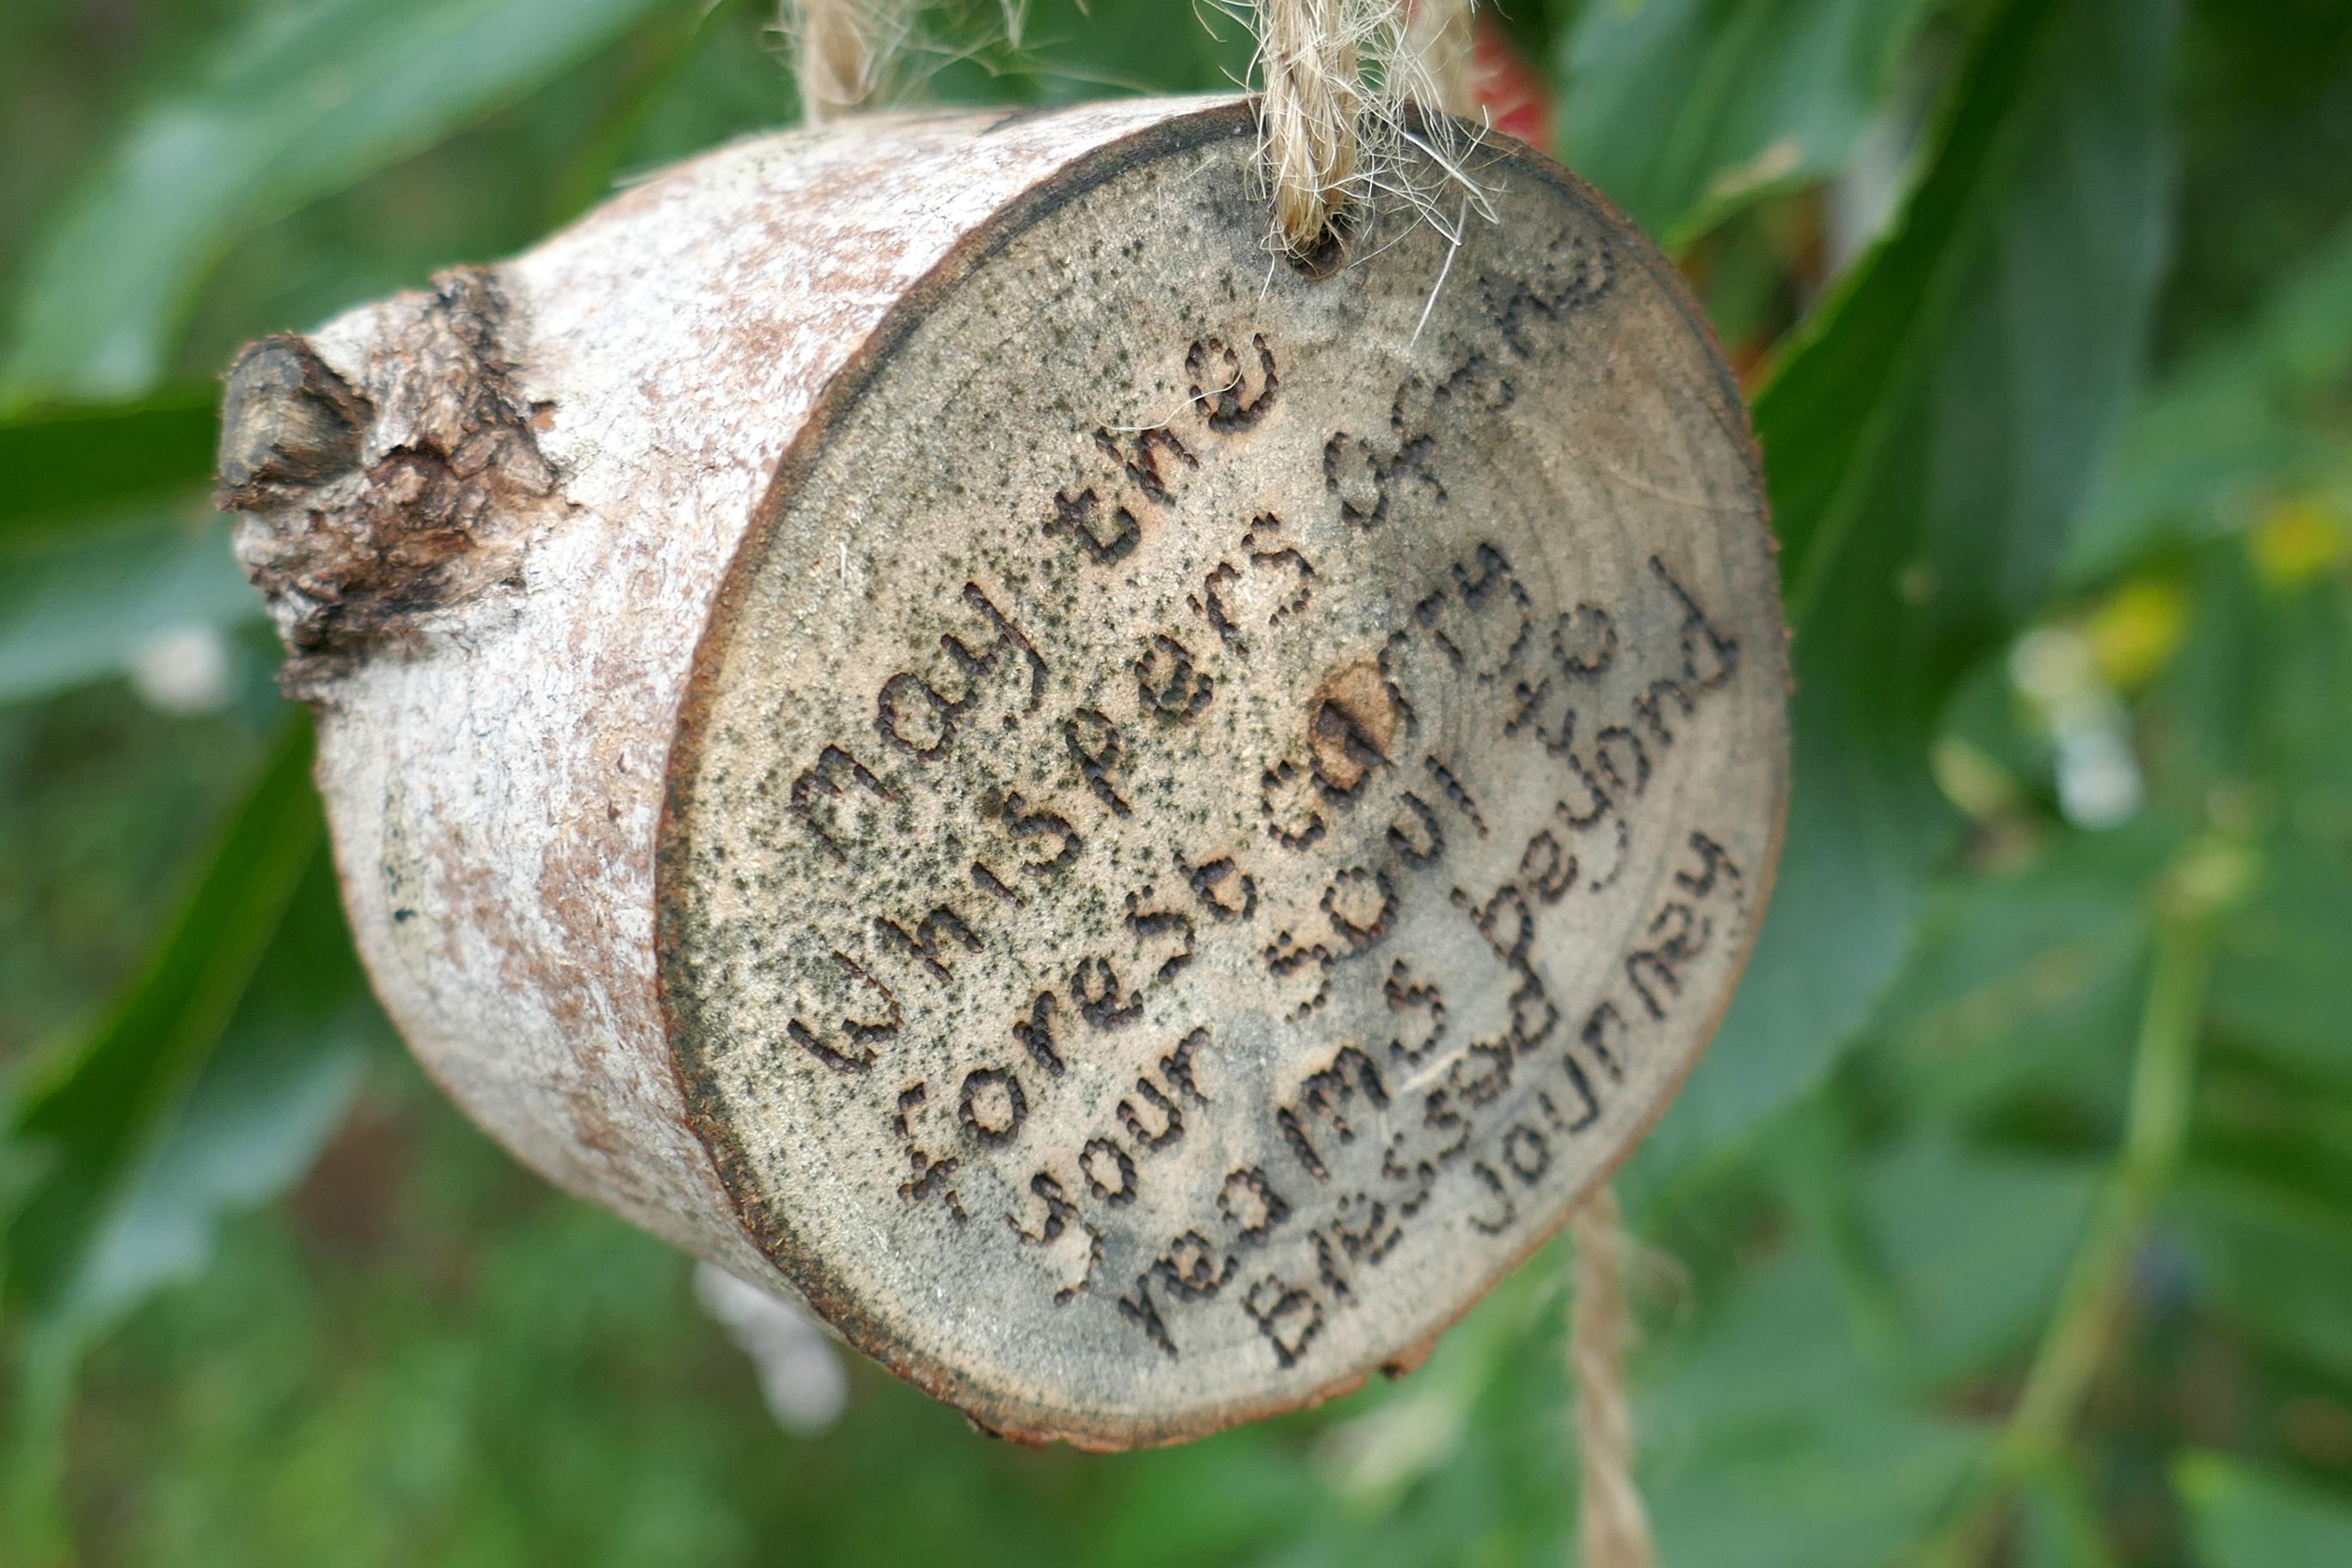 May the
Whispers of
forest carry
your soul to
realms beyond
Blessed
Journey